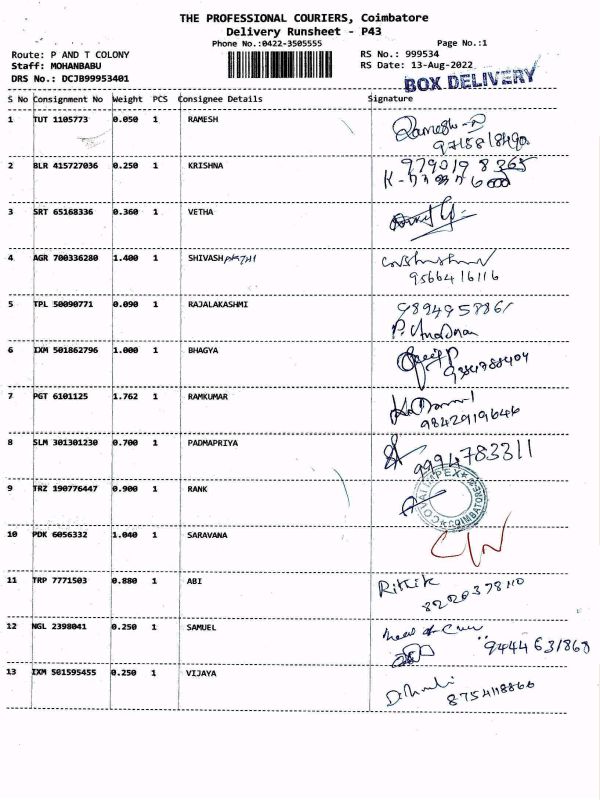 THE PROFESSIONAL COURIERS, Coimbatore
Delivery Runsheet - P43
Phone No.:0422-3505555 Page No.:1
Route: P AND T COLONY RS No.: 999534
Staff: MOHANBABU RS Date: 13-Aug-2022
DRS No.: DCJB99953401
BOX DELIVERY
S No Consignment No Weight PCS Consignee Details Signature
1 TUT 1105773 0.050 1 RAMESH
2 BLR 415727036 0.250 1 KRISHNA
3 SRT 65168336 0.360 1 VETHA
4 AGR 700336280 1.400 1 SHIVASH
9566416116
5 TPL 50090771 0.090 1 RAJALAKASHMI
6 IXM 501862796 1.000 1 BHAGYA
7 PGT 6101125 1.762 1 RAMKUMAR
9842919646
8 SLM 301301230 0.700 1 PADMAPRIYA
9994783311
9 TRZ 190776447 0.900 1 RANK
COIMBATORE
10 PDK 6056332 1.040 1 SARAVANA
11 TRP 7771503 0.880 1 ABI
12 NGL 2398041 0.250 1 SAMUEL
9444631868
13 IXM 501595455 0.250 1 VIJAYA